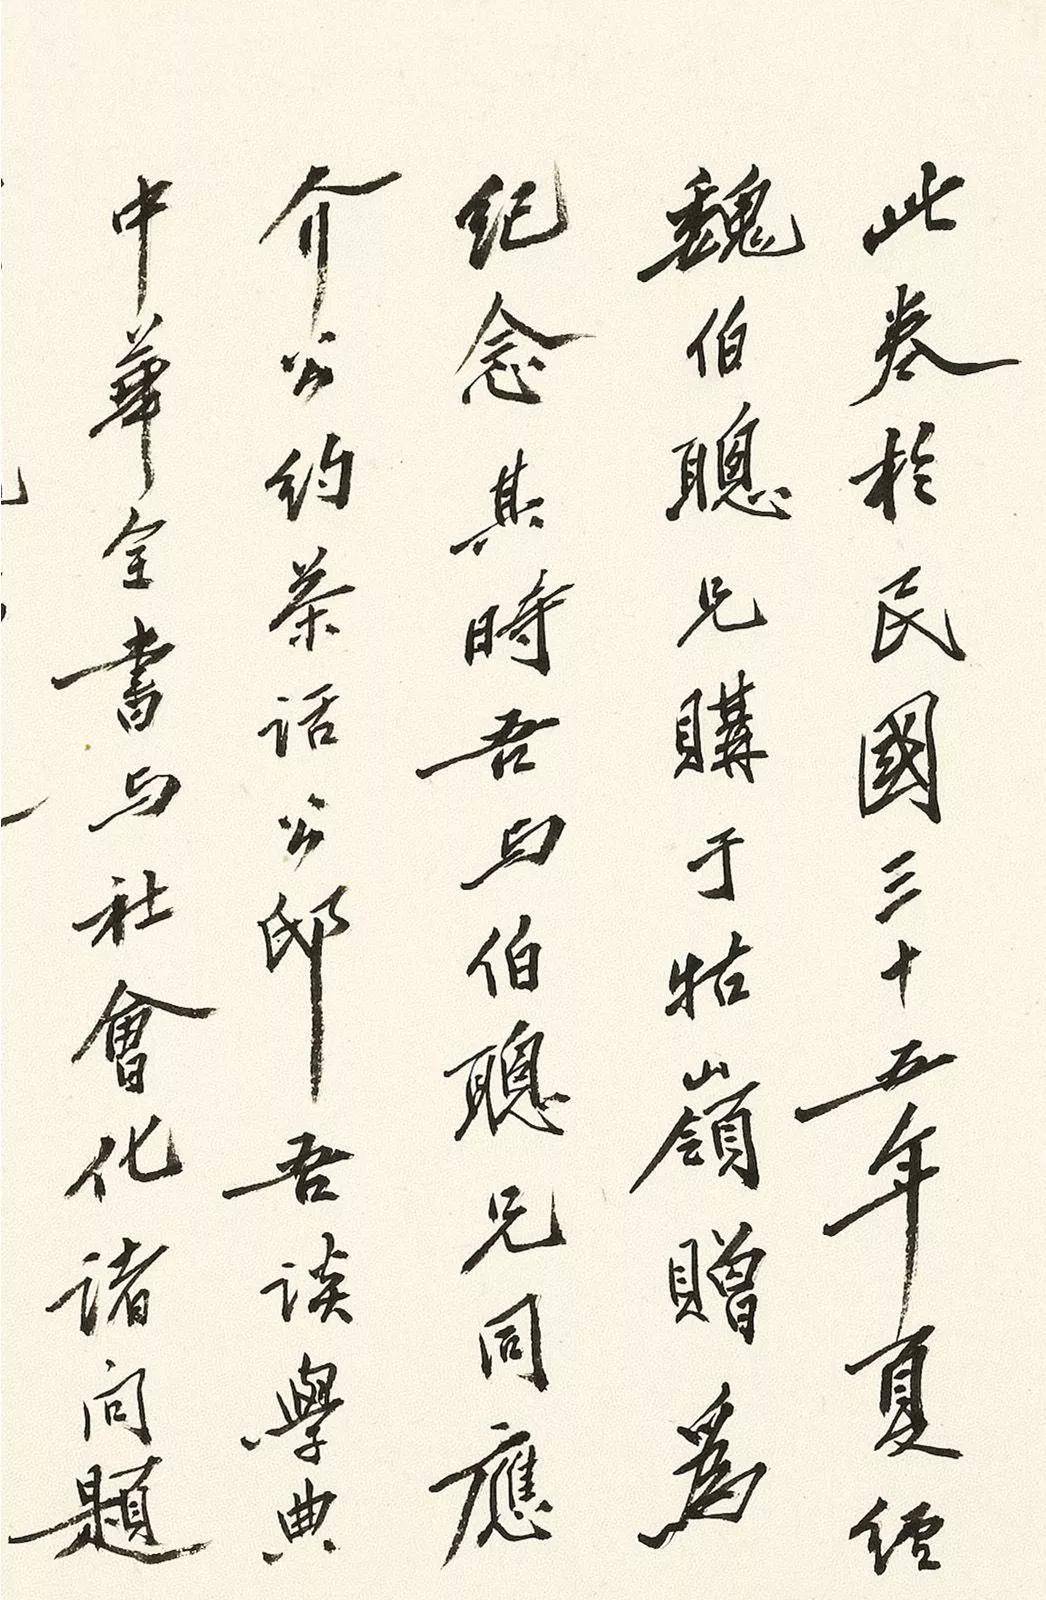 此卷於民國三十五年夏經
魏伯聰兄購于牯嶺贈爲
紀念其時吾与伯聰兄同應
介公約茶話公邸吾談學典
中華全書与社會化諸问題